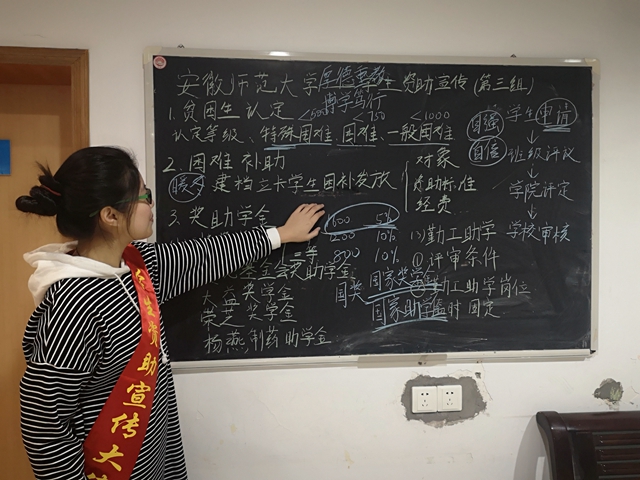 安徽师范大学厚德重教生资助宣传(第三组)
博学笃行
1.贫困生认定 <500 <750 <1000
认定等级、特殊困难、困难、一般困难
2.困难补助
暖冬 建档立卡学生困补发放
对象
资助标准
经费
3.奖助学金
1600 5%
1200 10%
三等 800 10%
基金会奖助学金
大益奖学金
荣芝奖学金
杨燕制药助学金
国奖 国家奖学金
国家助学金
(3)勤工助学
①评审条件
工助学岗位
时 固定
自强
自信
学生申请
↓
班级评议
↓
学院评定
↓
学校审核
学生资助宣传大